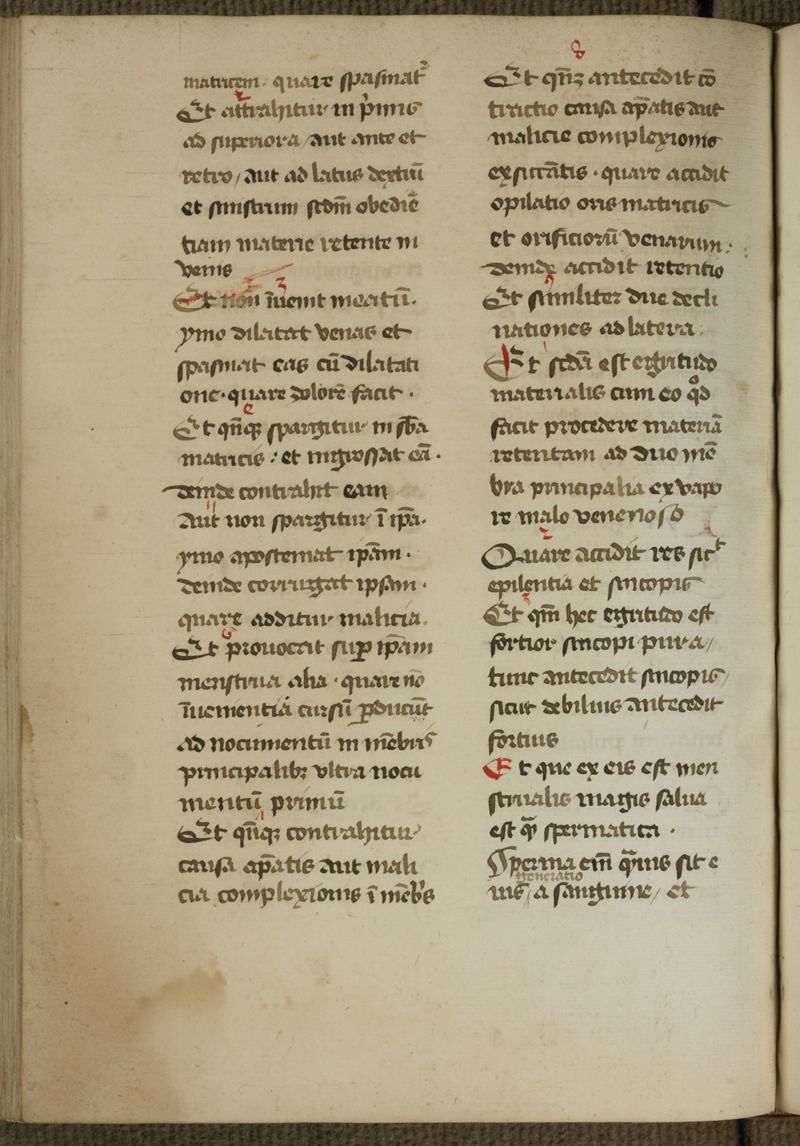 matricem. quare spasmat̄
Et attrahitur in p̄mis
ad superiora / aut ante et
retro / aut ad latus dextrū
et sinistrum scdm̄ obediē
tiam materie retente in
venis
Et non īuenit meatū.
ymo dilatat venas et
spasmat eas cū dilatati
one. quare dolorē facit.
Et qn̄q; spargitur in sb̄a
matricis : et ingrossat eā.
deinde contrahit eam
Aut non spargitur ī ip̄a.
ymo apostemat ip̄am.
deinde corrugat ipsam.
quare additur malicia.
Et prouocat sup ip̄am
menstrua alia. quare nō
īuenientia cursū ꝓducūt
ad nocumentū in mēbris
principalib; vltra nocu
mentū primū
Et qn̄q; contrahitur
causa ap̄atis aut mali
cia complexionis ī mēbris
Et qn̄q; antecedit cō
trictio causa ap̄atis aut
malicie complexionis
exsiccātis. quare accidit
opilatio oris matricis
et orificiorū venarum.
deinde accidit retentio
Et similiter due decli
nationes ad latera.
Et scd̄a est egritudo
materialis cum eo qd
facit procedere materiā
retentam ad duo mē
bra principalia ex vapo
re malo venenoso
Quare accidit res sic̄
epilentia et sincopis
Et qm̄ hec egritudo est
fortior sincopi pura /
tunc antecedit sincopis
sicut debilius antecedit
fortius
Et que ex eis est men
strualis magis salua
est q̄ spermatica.
Sperma em̄ q̄uis sit e
generatio
ius / a sanguine / et